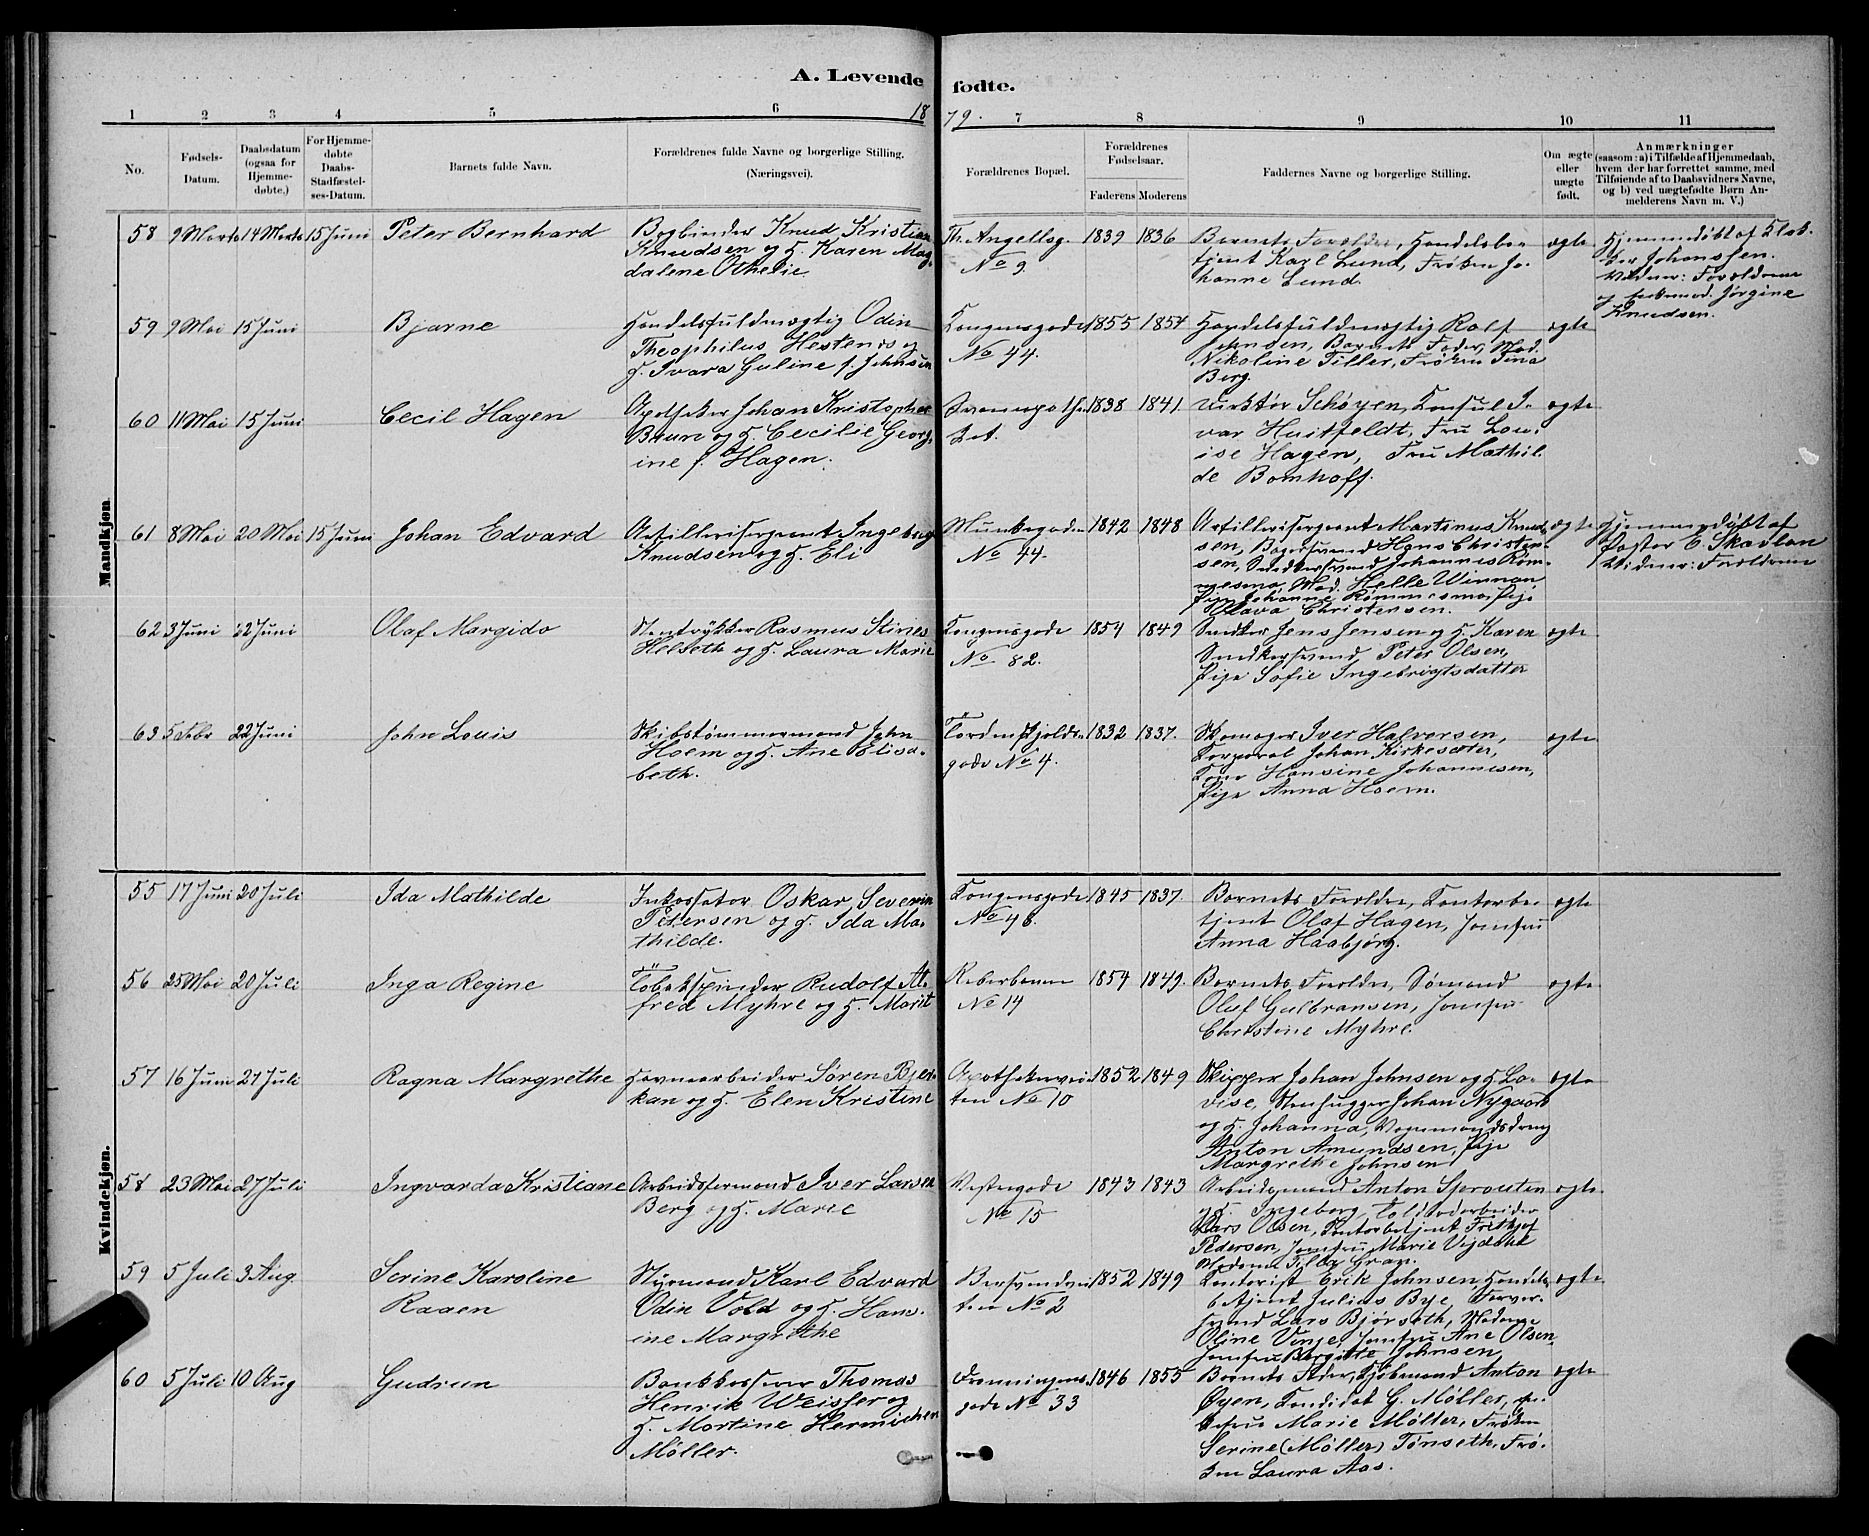 A. Levende fødte.
1879.
1 2 3 4 5 6 7 8 9 10 11
No.
Fødsels-Datum.
Daabsdatum (ogsaa for Hjemmedøbte.)
For Hjemmedøbte Daabs-Stadfæstelses-Datum.
Barnets fulde Navn.
Forældrenes fulde Navne og borgerlige Stilling. (Næringsvei).
Forældrenes Bopæl.
Forældrenes Fødselsaar.
Faderens Moderens
Faddernes Navne og borgerlige Stilling.
Om ægte eller uægte født.
Anmærkninger (saasom: a) i Tilfælde af Hjemmedaab, hvem der har forrettet samme, med Tilføiende af to Daabsvidners Navne, og b) ved uægtefødte Børn Anmelderens Navn m. V.)
Mandkjøn
58 9 Marts 14 Marts 15 Juni Peter Bernhard
Bogbinder Knud Kristian
Knudsen og H. Karen Mag-
dalene Othelie
Th. Angellsg.
No 9.
1839 1836
Barnets Forældre, Handelsbe-
tjent Karl Lund, Frøken Jo-
hanne Lund.
ægte
Hjemmedøbt af Klok-
ker Johanssen.
Vidner: Forældrene
og Jørgine
Knudsen.
59 9 Mai 15 Juni Bjarne
Handelsfuldmægtig Odin
Theophilus Hestenes og
H. Ivara Guline f. Johnsen
Kongensgade
No 44.
1855 1854
Handelsfuldmægtig Rolf
Johnsen, Barnets Fader, Mad.
Nikoline Tiller, Frøken Tina
Berg.
ægte
60 11 Mai 15 Juni Cecil Hagen
Apotheker Johan Kristopher
Bruun og H. Cecilie Georg-
ine f. Hagen.
Svaneapothe-
ket.
1838 1841
Direktør Schøyen, Konsul I-
var Huitfeldt, Fru Lou-
ise Hagen, Fru Mathil-
de Bomhoff.
ægte
61 8 Mai 20 Mai 15 Juni Johan Edvard
Artillerisergeant Ingebrigt
Knudsen og H. Eli
Munkegaden
No 44.
1842 1848
Artillerisergeant Martinus Knud-
sen, Bagersvend Hans Christen-
sen, Snedkersvend Johannes Røm-
mesmo, Mad. Helle Winnan
Pige Johanne Rømmesmo, Pige
Olava Christensen.
ægte
Hjemmedøbt af
Pastor E. Skavlan
Vidner: Forældrene
62 3 Juni 22 Juni Olaf Margido
Stentrykker Rasmus Stines
Helseth og H. Laura Marie
Kongensgade
No 82.
1854 1849
Snedker Jens Jensen og H. Karen
Snedkersvend Peter Olsen,
Pige Sofie Ingebrigtsdatter
ægte
63 5 Febr 22 Juni John Louis
Skibstømmermand John
Hoem og H. Ane Elisa-
beth.
Tordenskjolds-
gade No 4.
1832 1837.
Skomager Iver Halvorsen,
Korporal Johan Kirkesæter,
Kone Hansine Johannesen,
Pige Anna Hoem.
ægte
Kvindekjøn.
55 17 Juni 20 Juli Ida Mathilde
Inkassator Oskar Severin
Petersen og H. Ida Ma-
thilde.
Kongensgade
No 48.
1845 1837.
Barnets Forældre, Kontorbe-
tjent Olaf Hagen, Jomfru
Anna Haabjørg.
ægte
56 25 Mai 20 Juli Inga Regine
Tobakspinder Rudolf Al-
fred Myhre og H. Marit
Reberbanen
No 14
1854 1849.
Barnets Forældre, Sømand
Olaf Gulbransen, Jomfru
Christine Myhre.
ægte
57 16 Juni 27 Juli Ragna Margrethe
Havnearbeider Søren Bjer-
kan og H. Elen Kristine
Apothekervei-
ten No 10
1852 1849
Skipper Johan Johnsen og H. Lo-
vise, Stenhugger Johan Nygaard
og H. Johanna, Vognmandsdreng
Anton Amundsen, Pige
Margrethe Johnsen
ægte
58 23 Mai 27 Juli Ingvarda Kristiane
Arbeidsformand Iver Larsen
Berg og H. Marie
Vestergade
No 15
1843 1843
Arbeidsmand Anton Sprouten
og H. Ingeborg,
Lars Olsen, Kontorbetjent Fritjof
Pedersen, Jomfru Marie
Madame Tilda Gran.
ægte.
59 5 Juli 3 Aug Serine Karoline
Raaen
Styrmand Karl Edvard
Odin Vold og H. Hans-
ine Margrethe
Bersvendvei-
ten No 2
1852 1849
Kontorist Erik Johnsen, Handels-
betjent Julius Bye, Farver-
svend Lars Bjørseth, Madame
Oline Vinje, Jomfru Ane Olsen
Jomfru Bergitte Johnsen
ægte
60 5 Juli 10 Aug Gudrun
Bankkasserer Thomas
Henrik Weisser og
H. Martine Hermichen
Møller.
Dronningens-
gade No 33
1846 1855
Barnets Fader, Kjøbmand Anton
Øyen, Kandidat G. Møller,
Marie Møller, Frøken
Serine (Møller) Tønseth, Frø-
ken Laura Aas.
ægte